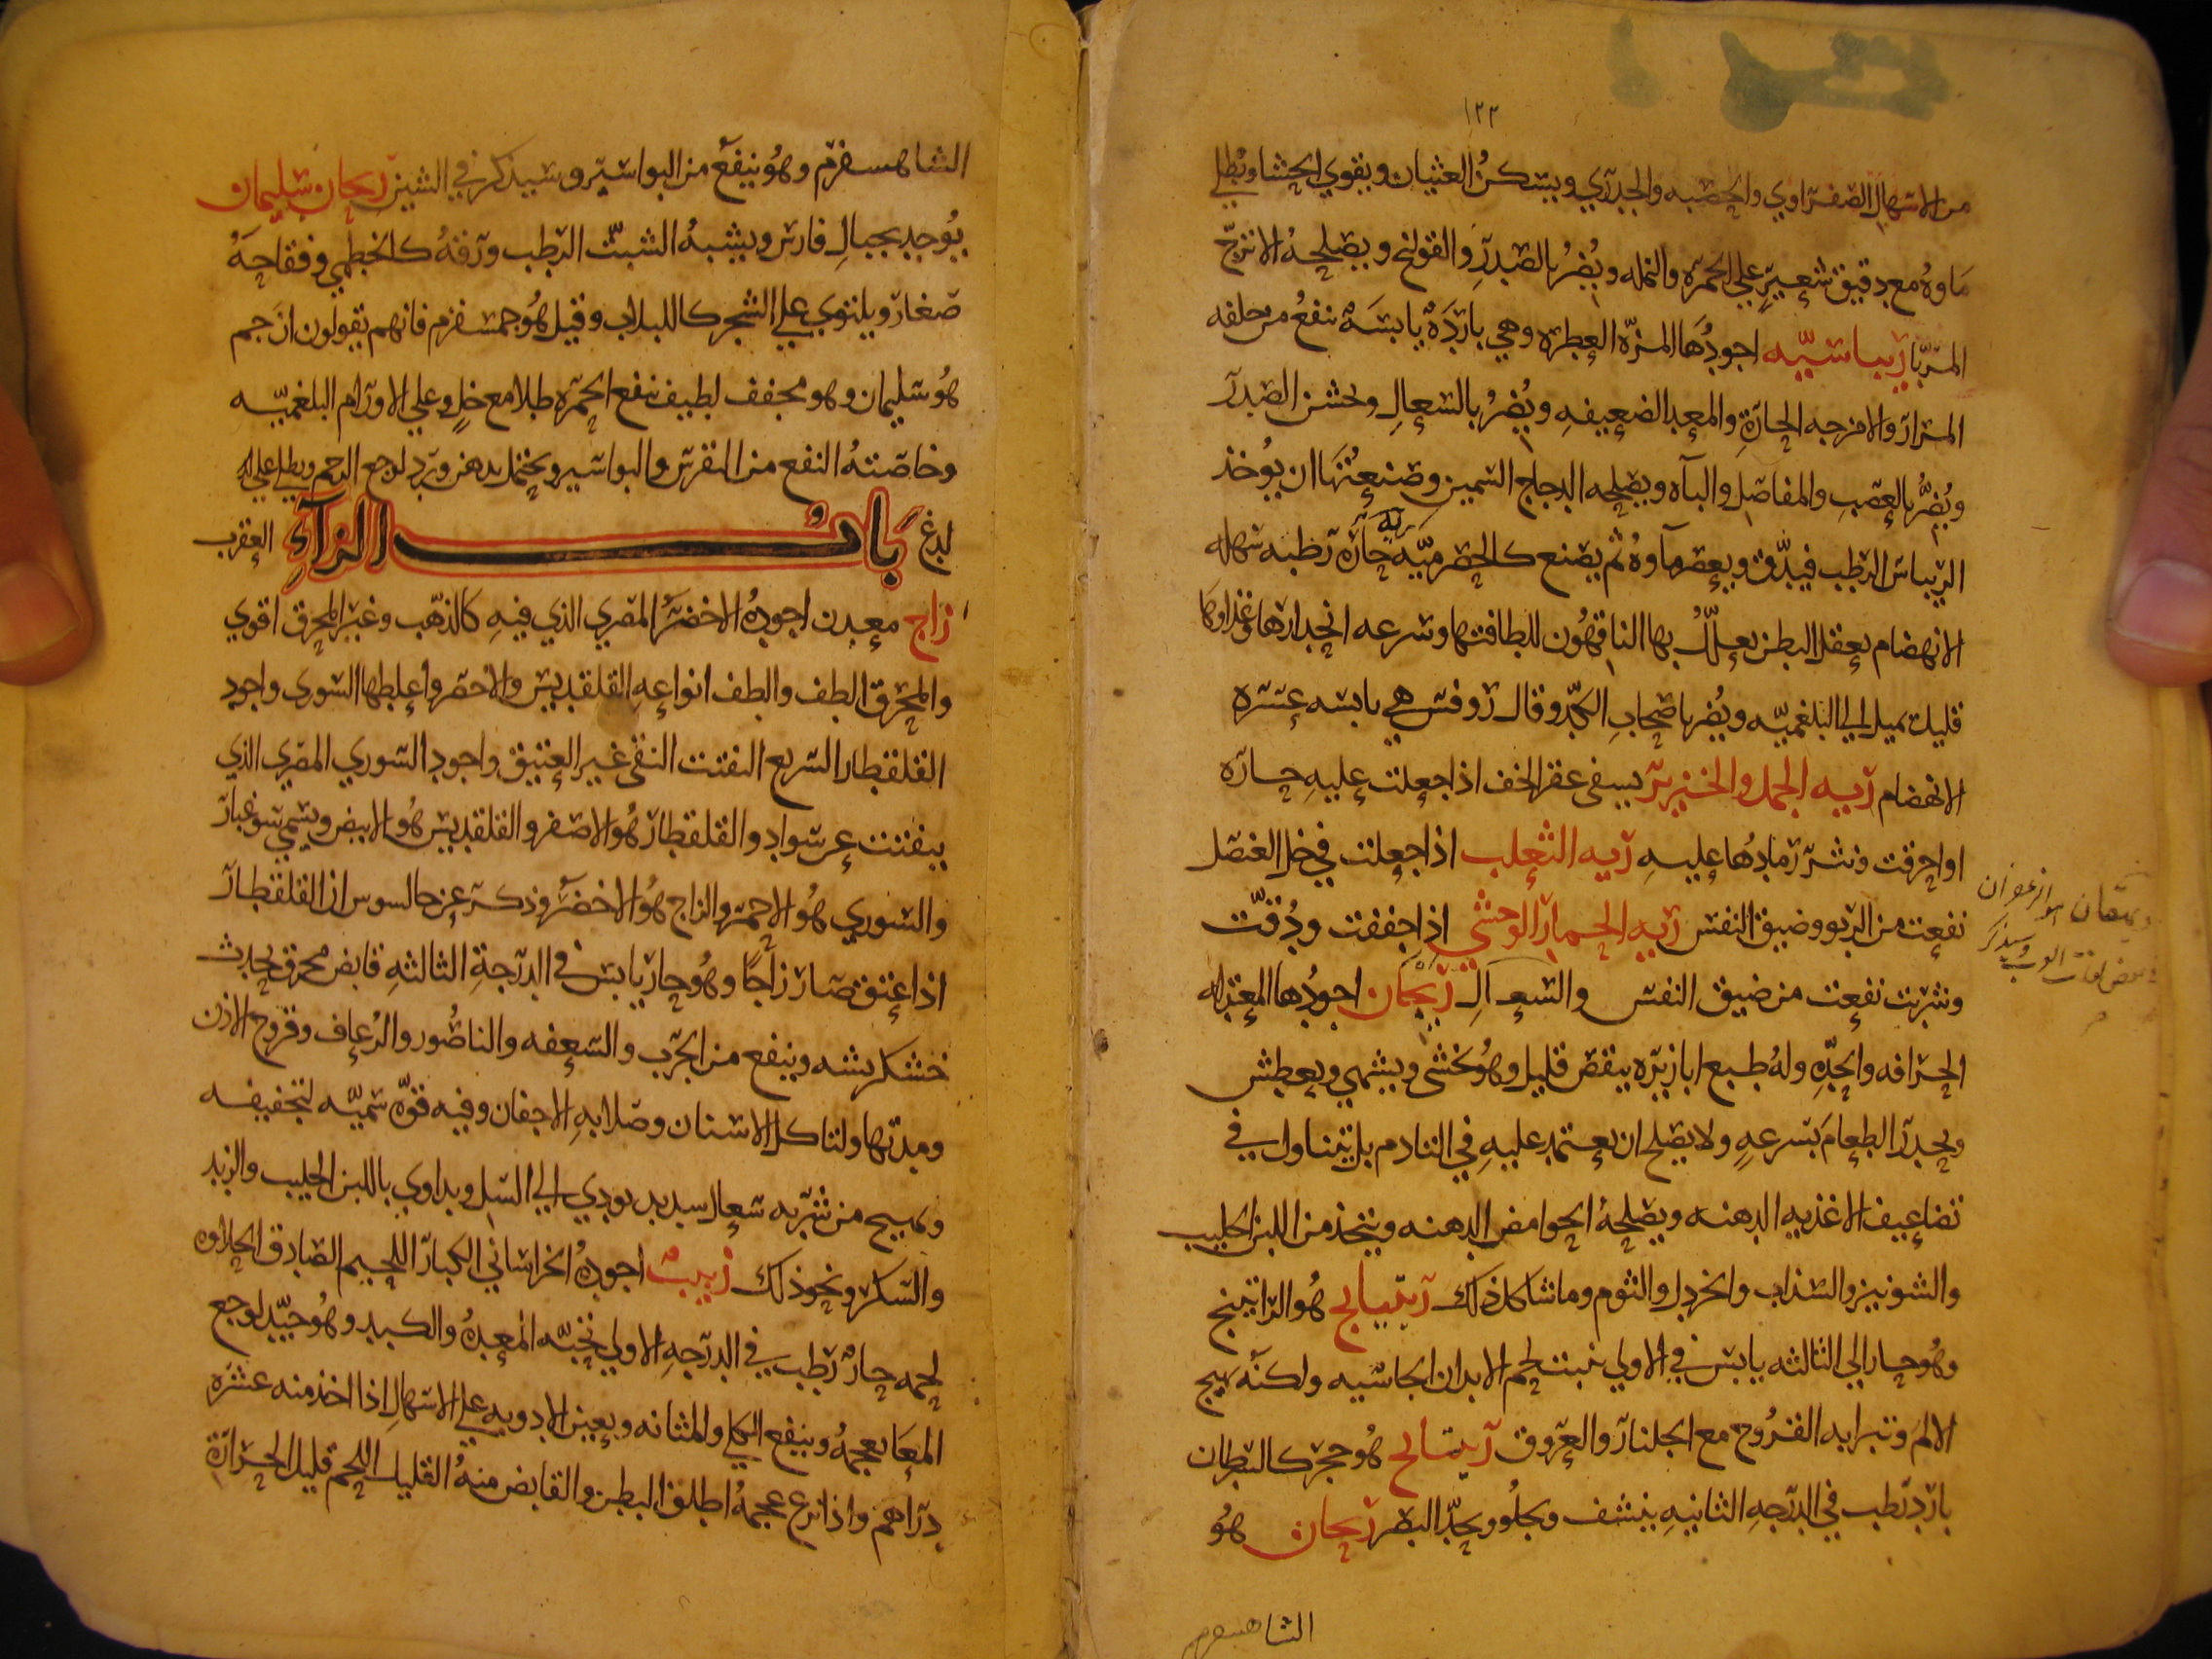 ١٢٣
من الاسهال الصفراوي والحصبه والجدري ويسكن الغثيان ويقوي الحشا ويطلي
ماوه مع دقيق شعير علي الحمره والنمله ويضر بالصدر والقولنج ويصلحه الاترج
المربا ريباسيه اجودها المزه العطره وهي بارده يابسه ينفع من حلفه
المرار والامزجه الحاره والمعد الضعيفه ويضر بالسعال وخشن الصدر
ويضر بالعصب والمفاصل والباه ويصلحه الدجاج السمين وصنعتها ان يوخذ
الريباس الرطب فيدق ويعصر ماوه ثم يصنع كالحصرميه حاره رطبه سهله
الانهضام يعقل البطن يعلل بها الناقهون للطافتها وسرعه انحدارها وغذاوها
قليل يميل الي البلغميه ويضر باصحاب الكبد وقال روفس هي يابسه عسره
الانهضام ريه الجمل والخنزير يشفي عقر الخف اذا جعلت عليه حاره
او احرقت ونثر رمادها عليه ريه الثعلب اذا جعلت في خل العنصل
نفعت من الربو وضيق النفس ريه الحمار الوحشي اذا جففت ودقت
وشربت نفعت من ضيق النفس والسعال اجودها المعتدله
الحرافه والحده وله طبع ابازيره ينقص قليل وهو يخشي ويشهي ويعطش
ويحدر الطعام بسرعه ولا يصلح ان يعتمد عليه في التادم بل يتناول في
تضاعيف الاغذيه الدهنه ويصلحه الحوامض الدهنه ويتخذ من اللبن الحليب
والشونيز والسذاب والخردل والثوم وما شاكل ذلك هو الراتينج
وهو حار الي الثالثه يابس في الاولي ينبت لحم الابدان الجاسيه ولكنه يهيج
الالم وتبرا به القروح مع الجلنار والعروق هو حجر كالسرطان
بارد رطب في الدرجه الثانيه ينشف ويجلو ويحد البصر ريحان هو
الشاهسفرم
الزعفران
وسيذكر
الشاهسفرم وهو ينفع من البواسير وسيذكر في الشين ريحان سليمان
يوجد بجبال فارس ويشبه الشبث الرطب ورقه كالخطمي وفقاحه
صغار ويلتوي علي الشجر كاللبلاب وقيل هو جمسفرم فانهم يقولون ان جم
هو سليمان وهو مجفف لطيف ينفع الحمره طلا مع خل وعلي الاورام البلغميه
وخاصته النفع من النقرس والبواسير ويحتمل بدهن ورد لوجع الرحم ويطلي علي
لدغ باب الزآء العقرب
زاج معدن اجوده الاخضر المصري الذي فيه كالذهب وغير المحرق اقوي
والمحرق الطف والطف انواعه القلقديس والاخضر واغلظها السوري واجود
القلقطار السريع التفتت النقي غير العتيق واجود السوري المصري الذي
يتفتت عن سواد والقلقطار هو الاصفر والقلقديس هو الابيض ويسمي
والسوري هو الاحمر والزاج هو الاخضر وذكر عن جالسوس ان القلقطار
اذا عتق صار زاجا وهو حار يابس في الدرجه الثالثه قابض محرق يحدث
خشكريشه وينفع من الجرب والسعفه والناصور والرعاف وقروح الاذن
ومدتها ولتاكل الاسنان وصلابه الاجفان وفيه قوه سميه لتجفيفه
ويهيج من شربه سعال شديد يودي الي السل ويداوي باللبن الحليب والزبد
والسكر ونحو ذلك زبيب اجوده الخراساني الكبار اللحيم الصادق الحلاوه
لحمه حار رطب في الدرجه الاولي تحبه المعده والكبد وهو جيد لوجع
المعا بعجمه وينفع الكلي والمثانه ويعين الادويه علي الاسهال اذا اخذ منه عشره
دراهم واذا نزع عجمه اطلق البطن والقابض منه القليل اللحم قليل الحراره